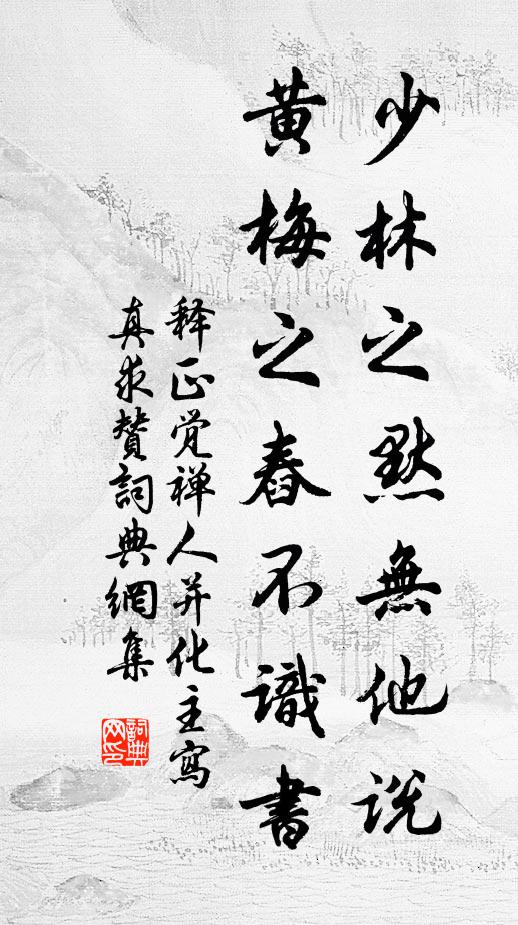 少林之默無他说
黄梅之舂不識書
释正觉禅人并化主寫
真求賛詞典網集
詞典網印